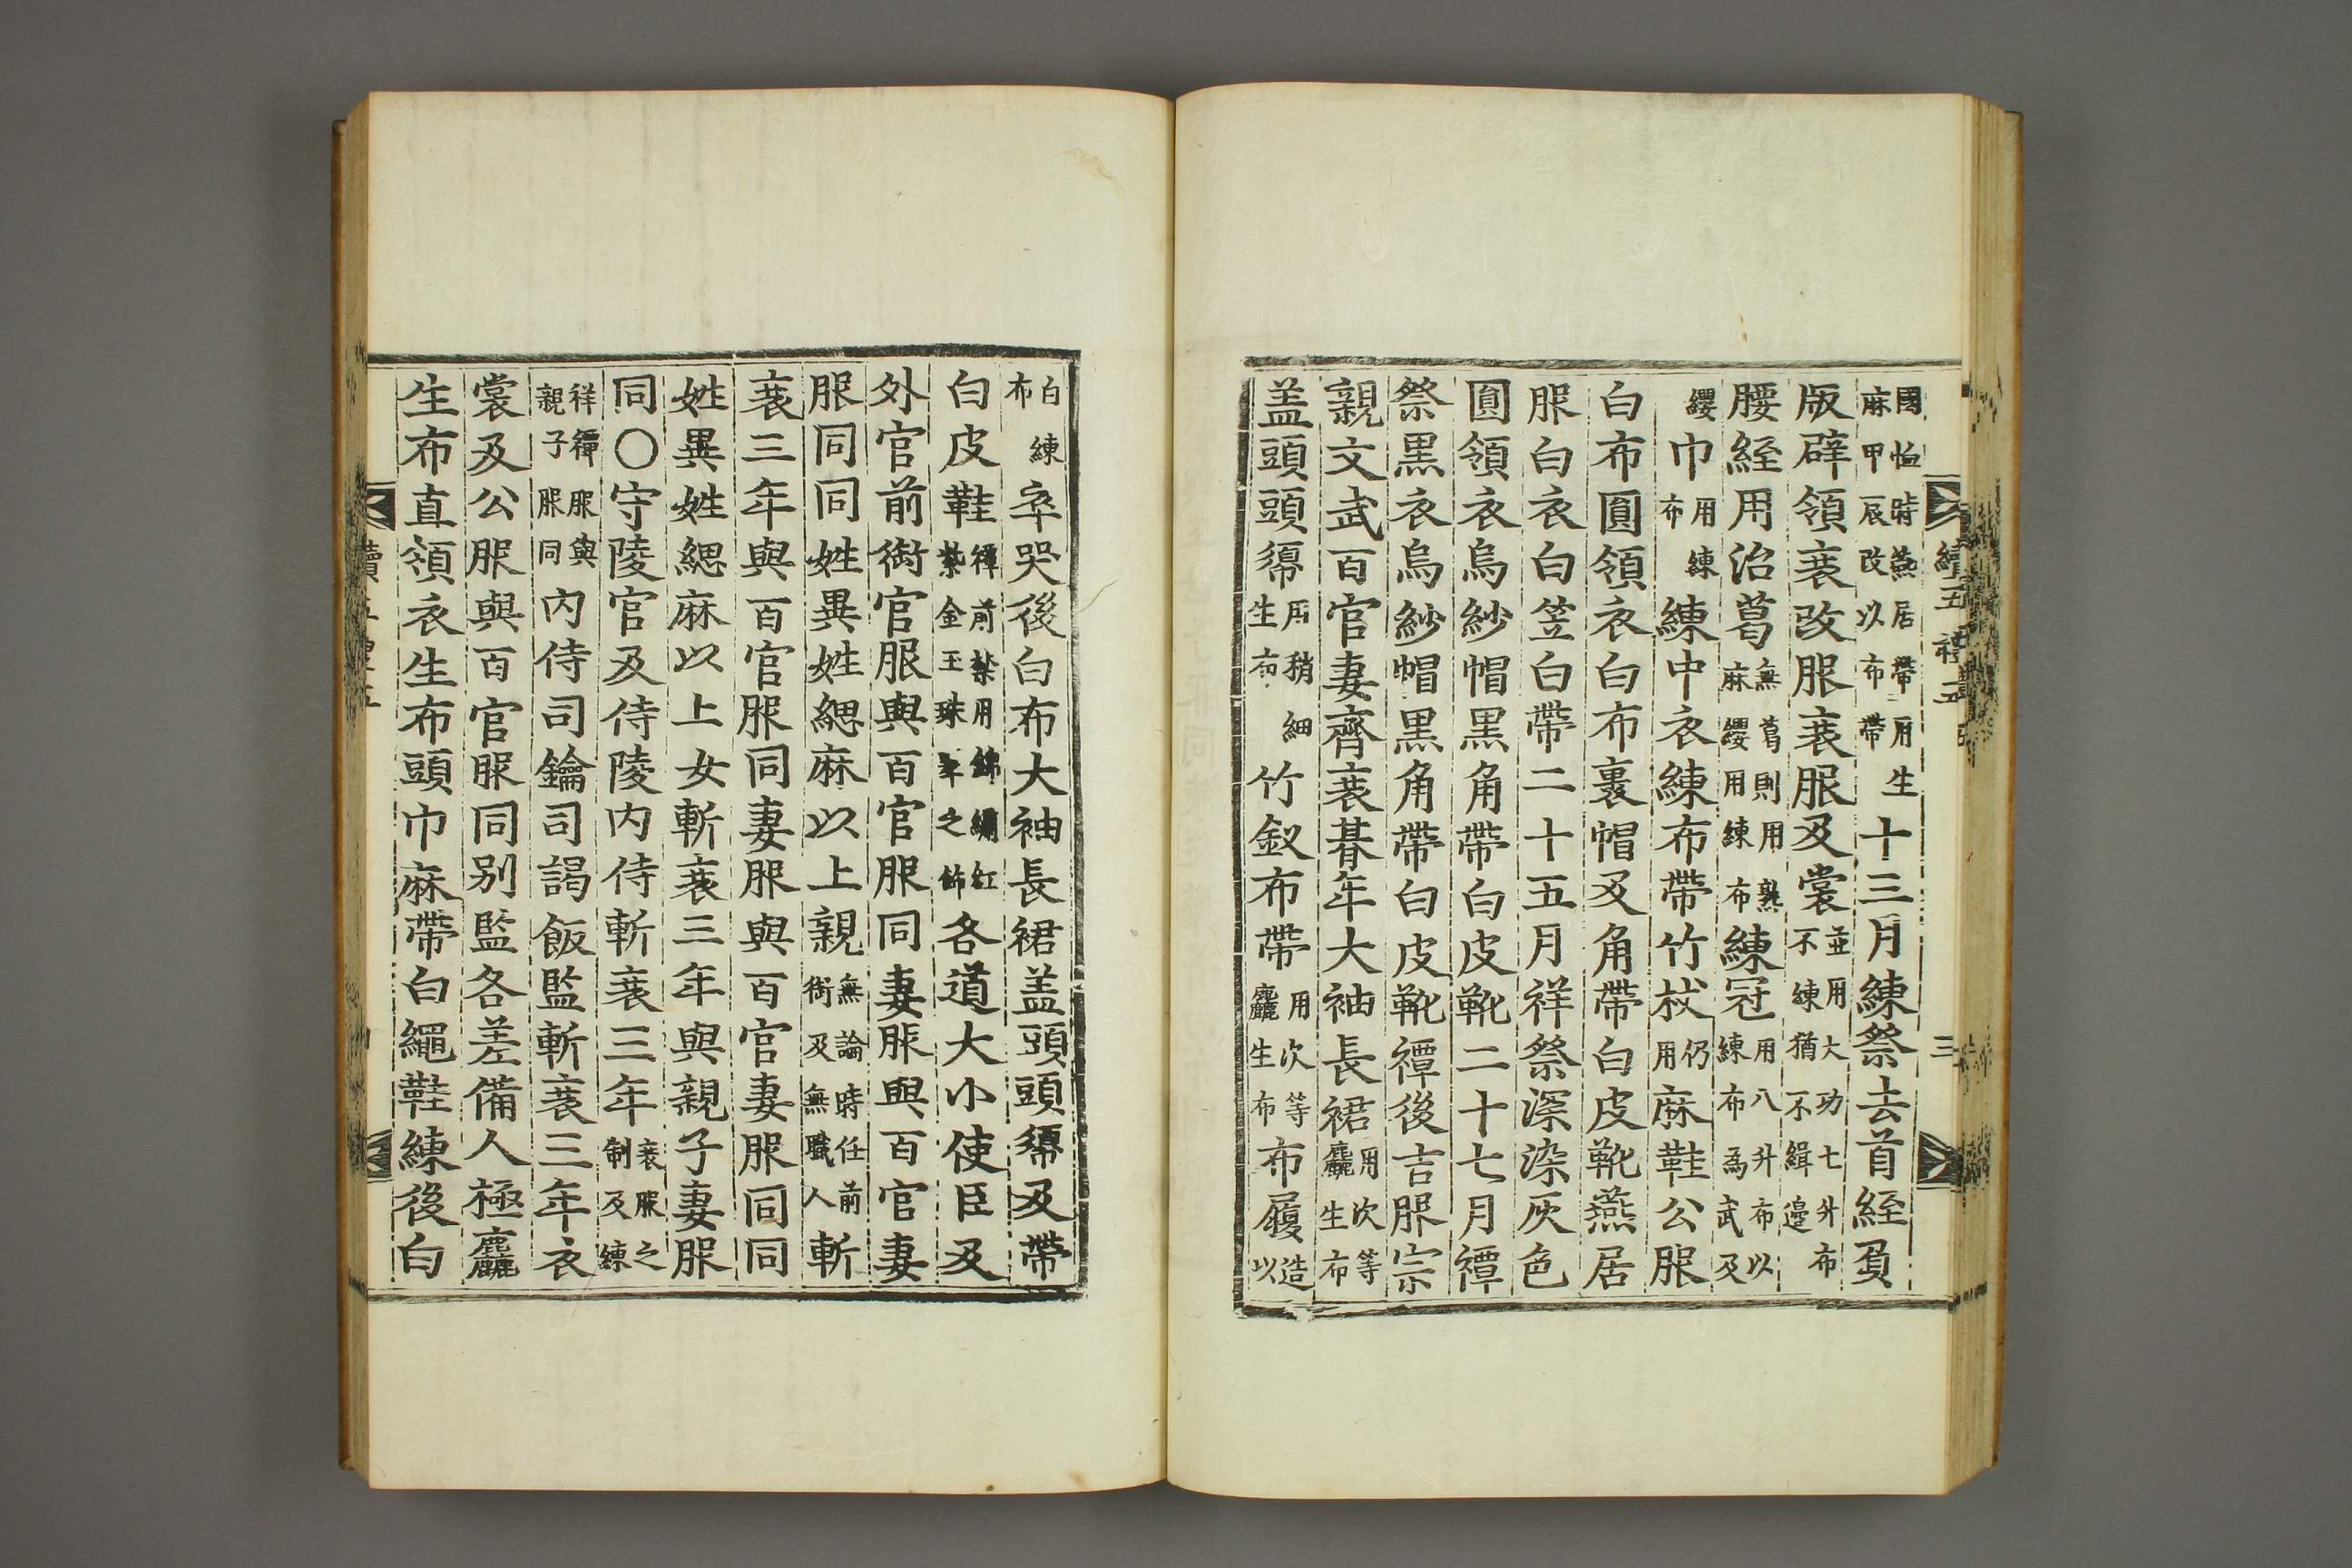 國恤時燕居帶用生麻甲辰改以布帶十三月練祭去首絰負
版辟領衰改服衰服及裳並用大功七升布不練猶不緝邊
腰絰用治葛無葛則用熟麻纓用練布練冠用八升布以練布爲武及
纓巾用練布練中衣練布帶竹杖仍用麻鞋公服
白布圓領衣白布裹帽及角帶白皮靴燕居
服白衣白笠白帶二十五月祥祭深染灰色
圓領衣烏紗帽黑角帶白皮靴二十七月禫
祭黑衣烏紗帽黑角帶白皮靴禫後吉服宗
親文武百官妻齊衰朞年大袖長裙用次等麤生布
盖頭頭𢄼用稍細生布竹釵布帶用次等麤生布布履造以
白練布卒哭後白布大袖長裙盖頭頭𢄼及帶
白皮鞋禫前禁用錦繡紅紫金玉珠翠之飾各道大小使臣及
外官前銜官服與百官服同妻服與百官妻
服同同姓異姓緦麻以上親無論時任前銜及無職人斬
衰三年與百官服同妻服與百官妻服同同
姓異姓緦麻以上女斬衰三年與親子妻服
同○守陵官及侍陵内侍斬衰三年衰服之制及練
祥禫服與親子服同内侍司鑰司謁飯監斬衰三年衣
裳及公服與百官服同別監各差備人極麤
生布直領衣生布頭巾麻帶白繩鞋練後白
續五禮五
三